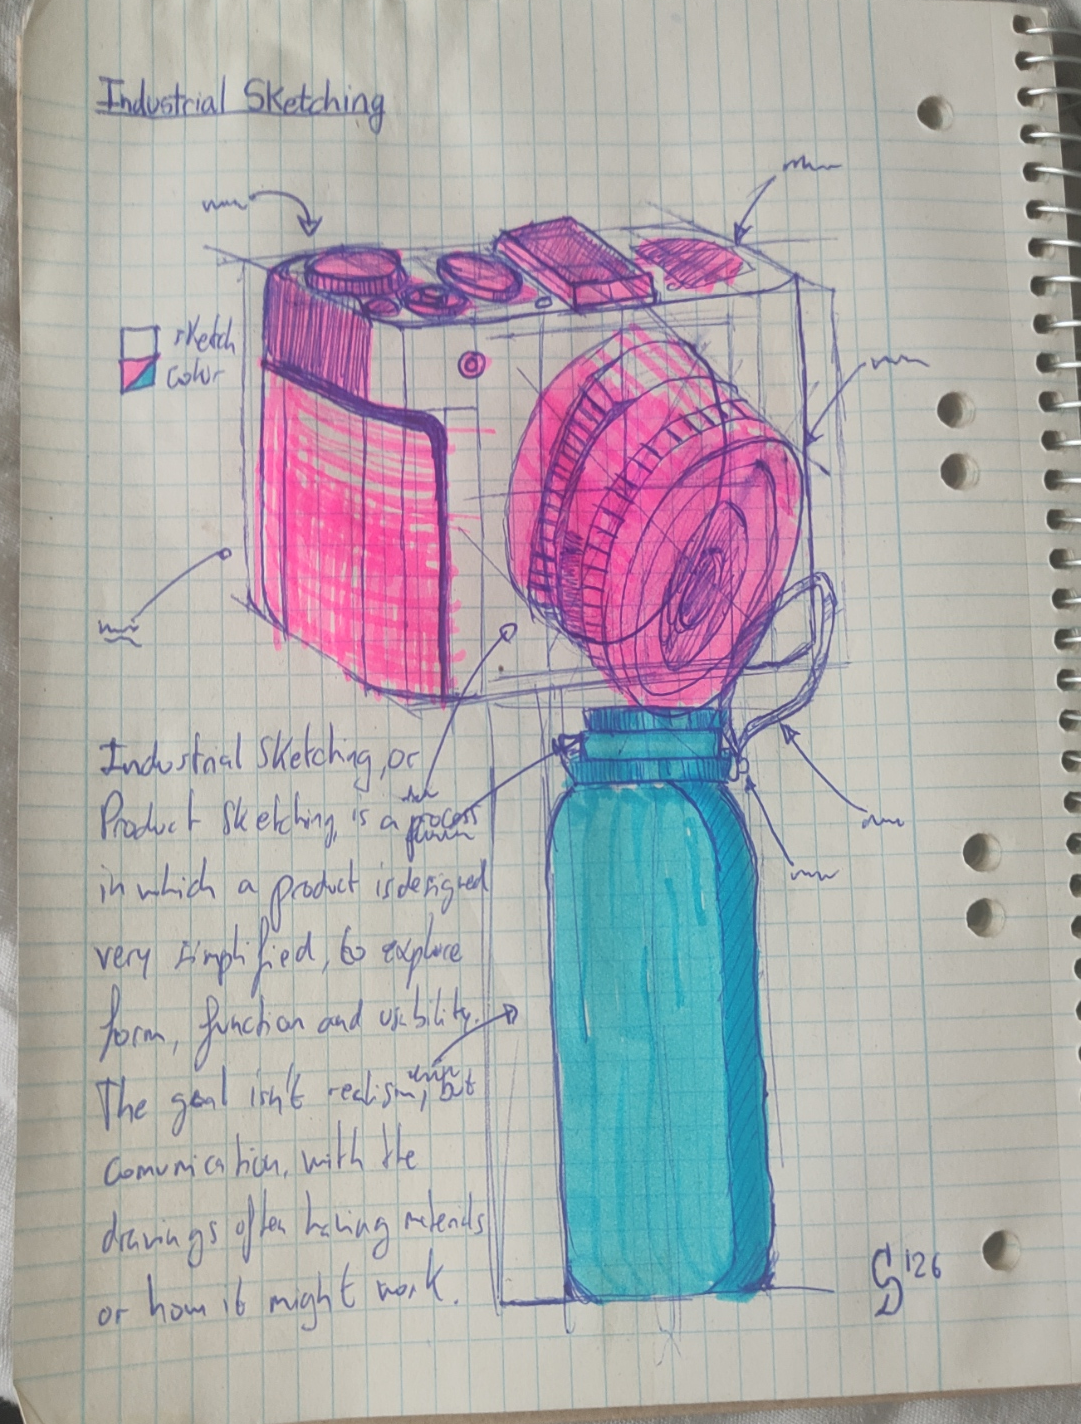 Industrial Sketching
sketch
color
Industrial Sketching, or
Product Sketching, is a process
in which a product is designed
very simplified, to explore
form, function and usibility.
The goal isn't realism, but
comunication, with the
drawings often having
or how it might work.
'126